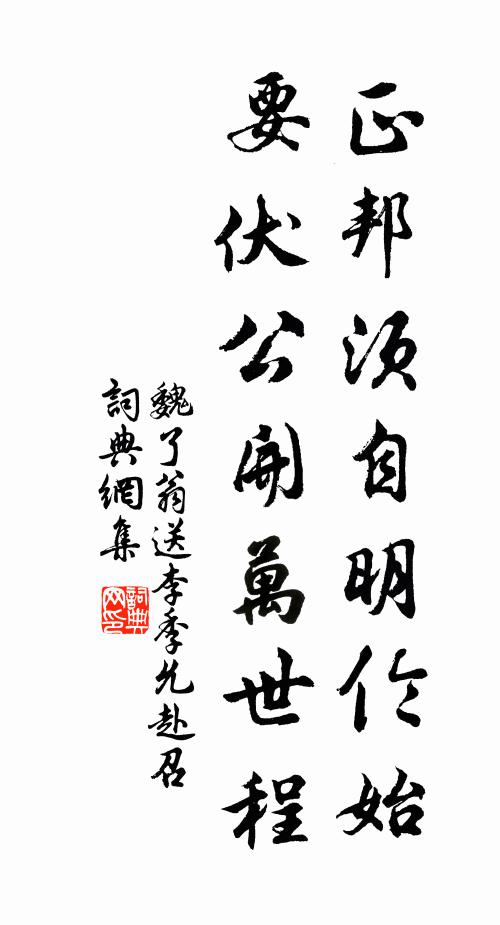 正邦須自明倫始
要伏公開萬世程
魏了翁送李季允赴召
詞典網集
詞典
网印